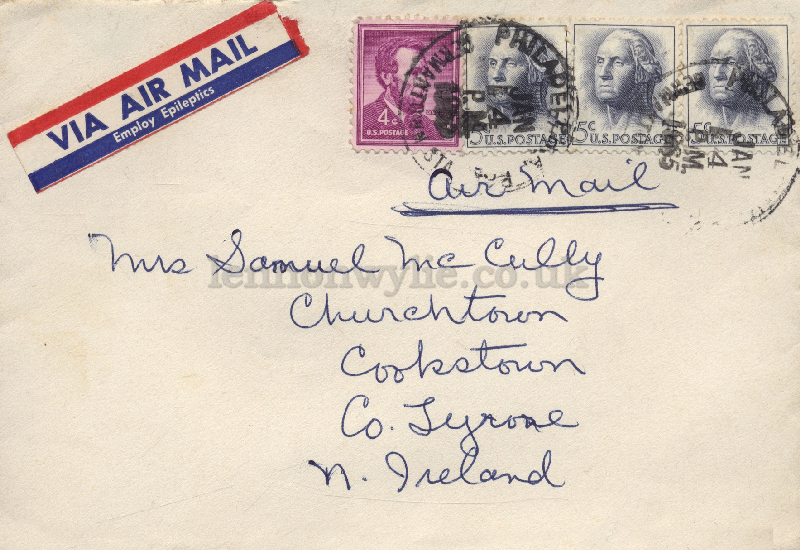 VIA AIR MAIL
Employ Epileptics
4¢
U.S. POSTAGE
5¢
U.S. POSTAGE
5¢
U.S. POSTAGE
5¢
U.S. POSTAGE
PHILADEL
JAN
4
P.M.
1965
STA.
PHILADEL
JAN
4
P.M.
1965
Air Mail
Mrs Samuel McCully
Churchtown
Cookstown
Co. Tyrone
N. Ireland
lennonwylie.co.uk